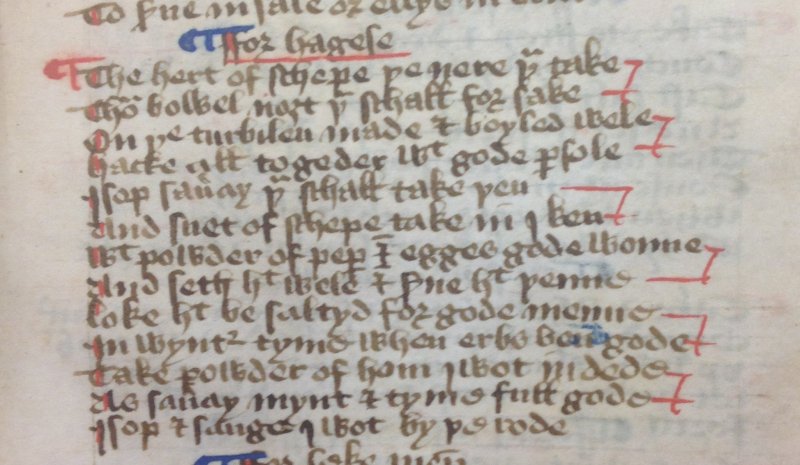 To s͛ue in sale or ellys in
For hagese
The hert of schepe þe nere þu take
Tho bowel noȝt þu schalt for sake
On þe turbilen made & boyled wele
hacke all to geder wt gode ꝑsole
Isop sau͛ay þu schall take þen
And suet of schepe take in I ken
wt powder of pep͛ & egges gode wonne
And seth ht wele & s͛ue ht þenne
loke ht be saltyd for gode menne
In wynt͛ tyme when erbs ben gode
Take powder of hom I wot in dede
As sau͛ay mynt & tyme full gode
Isop & sauge I wot by þe rode
For